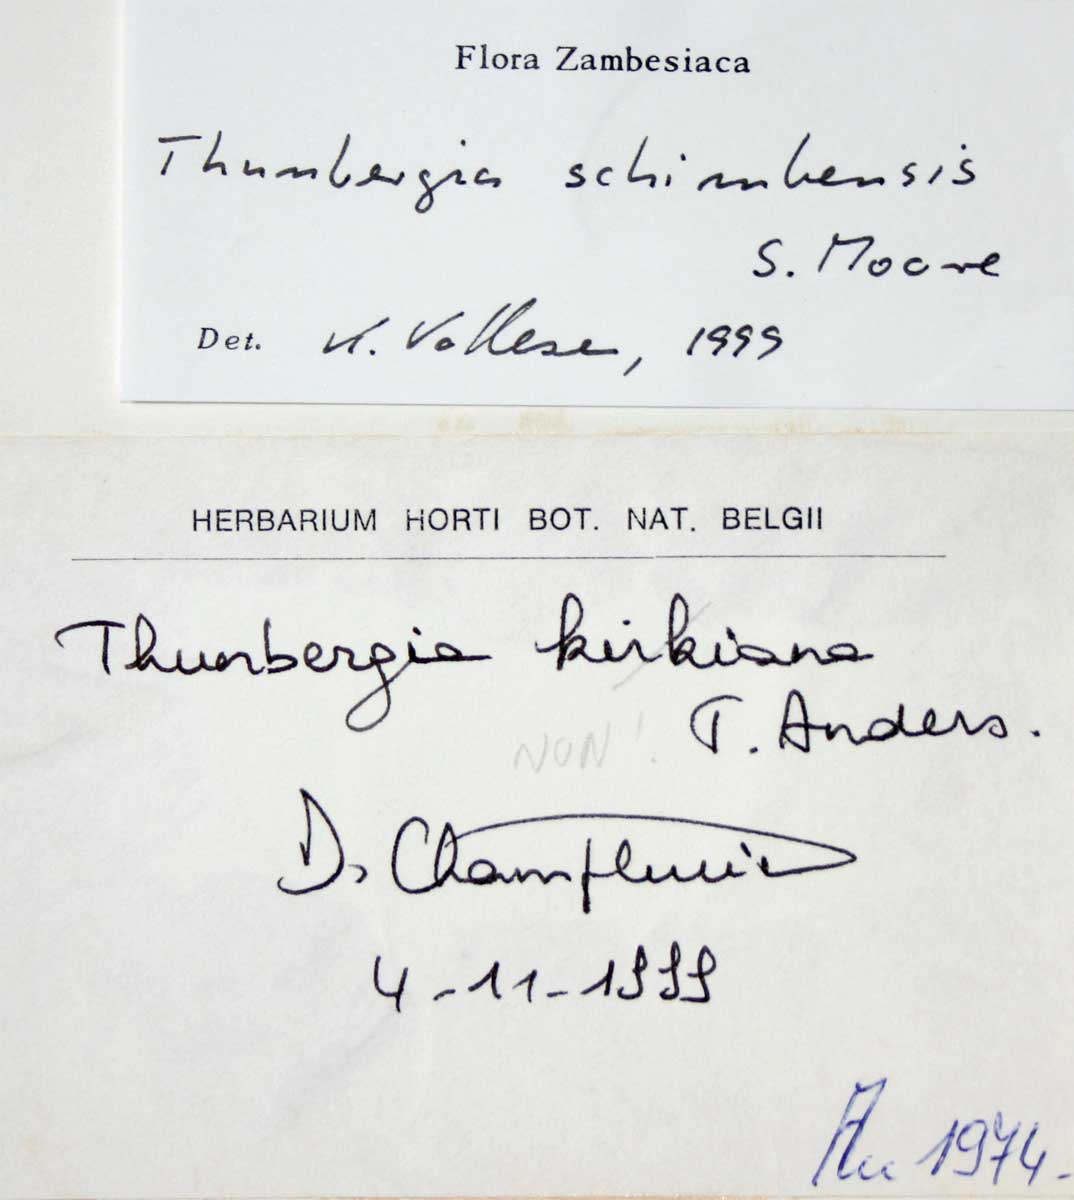 Flora Zambesiaca
Thunbergia schimbensis
S. Moore
Det. K. Vollesen, 1999
HERBARIUM HORTI BOT. NAT. BELGII
Thunbergia kirkiana
T. Anders.
NON!
D. Champluvier
4-11-1999
1974.